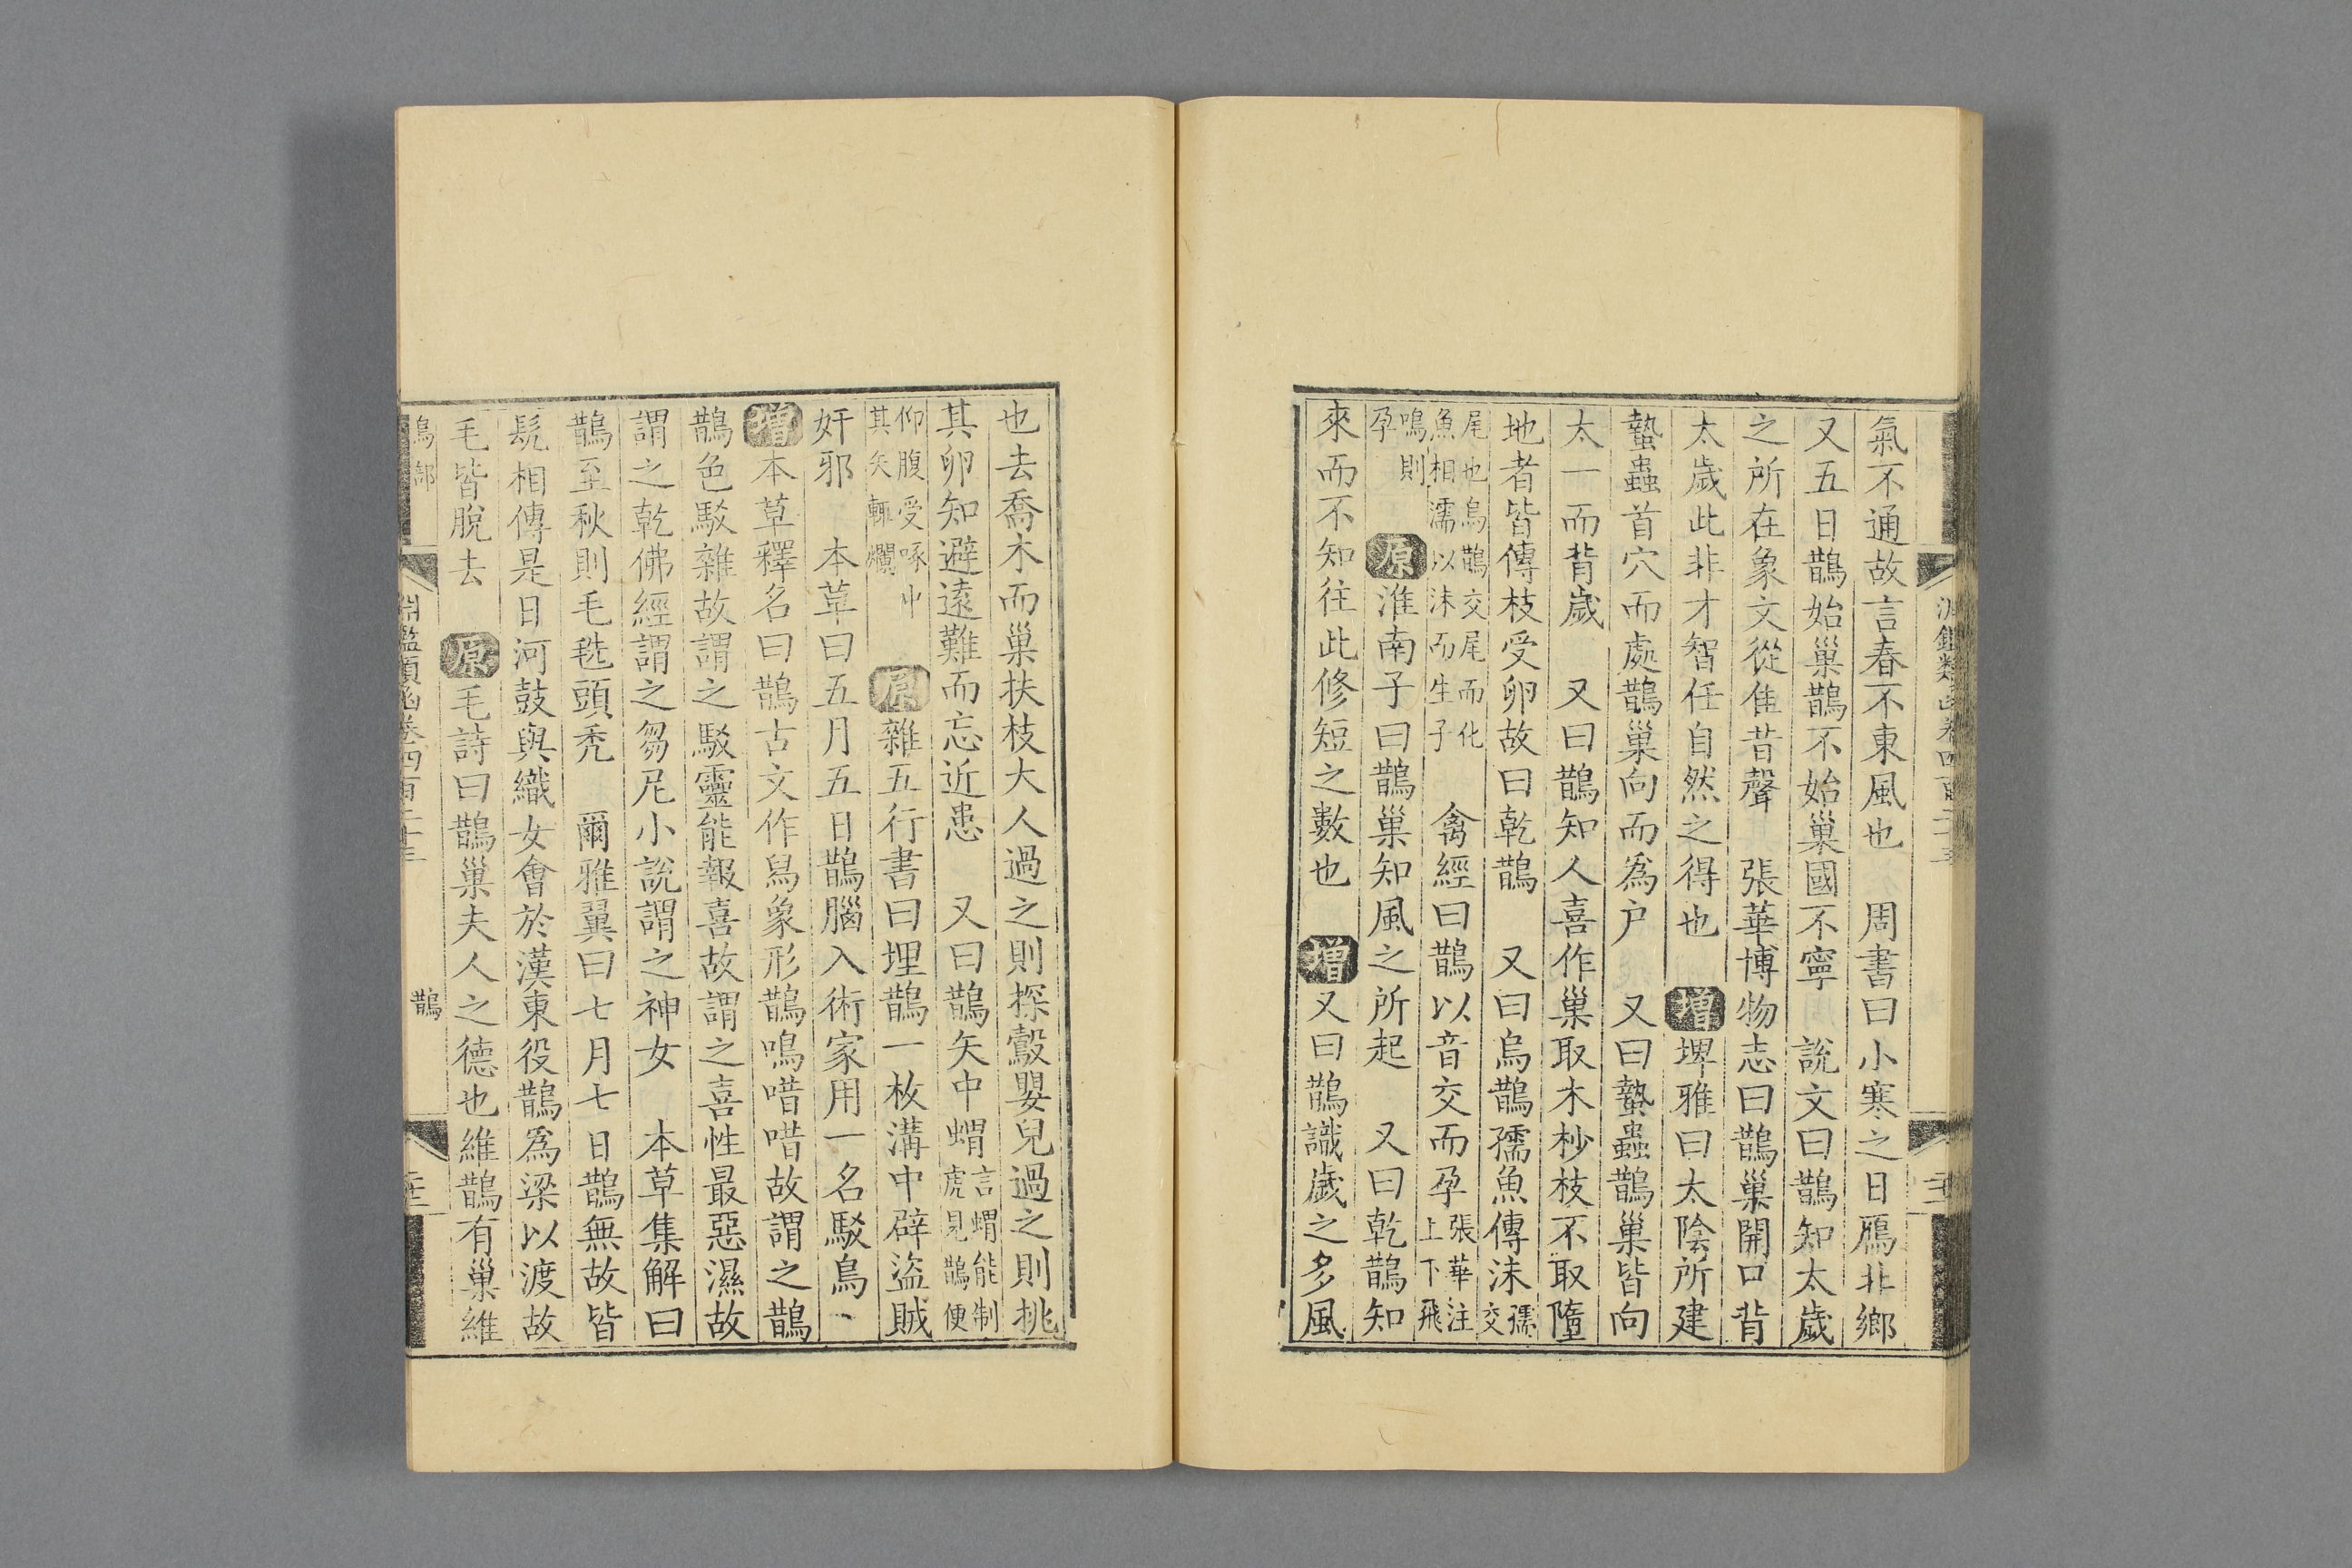 氣不通故言春不東風也　周書曰小寒之日鴈北鄉
又五日鵲始巢鵲不始巢國不寧　說文曰鵲知太歲
之所在象文從隹昔聲　張華博物志曰鵲巢開口背
太歲此非才智任自然之得也　增埤雅曰太陰所建
蟄蟲首穴而處鵲巢向而爲户　又曰蟄蟲鵲巢皆向
太一而背歲　又曰鵲知人喜作巢取木杪枝不取墮
地者皆傳枝受卵故曰乾鵲　又曰烏鵲孺魚傳沫孺交
尾也烏鵲交尾而化魚相濡以沫而生子　禽經曰鵲以音交而孕張華注上下飛
鳴則孕　原淮南子曰鵲巢知風之所起　又曰乾鵲知
來而不知往此修短之數也　增又曰鵲識歲之多風
也去喬木而巢扶枝大人過之則探鷇嬰兒過之則挑
其卵知避遠難而忘近患　又曰鵲矢中蝟言蝟能制虎見鵲便
仰腹受啄中其矢輒爛　原雜五行書曰埋鵲一枚溝中辟盜賊
奸邪　本草曰五月五日鵲腦入術家用一名駮鳥、
增本草釋名曰鵲古文作舄象形鵲鳴唶唶故謂之鵲
鵲色駮雜故謂之駮靈能報喜故謂之喜性最惡濕故
謂之乾佛經謂之芻尼小說謂之神女　本草集解曰
鵲至秋則毛毨頭禿　爾雅翼曰七月七日鵲無故皆
髡相傳是日河鼓與織女會於漢東役鵲爲梁以渡故
毛皆脫去　原毛詩曰鵲巢夫人之德也維鵲有巢維
鳥部　淵鑑類函卷四百二十三　鵲